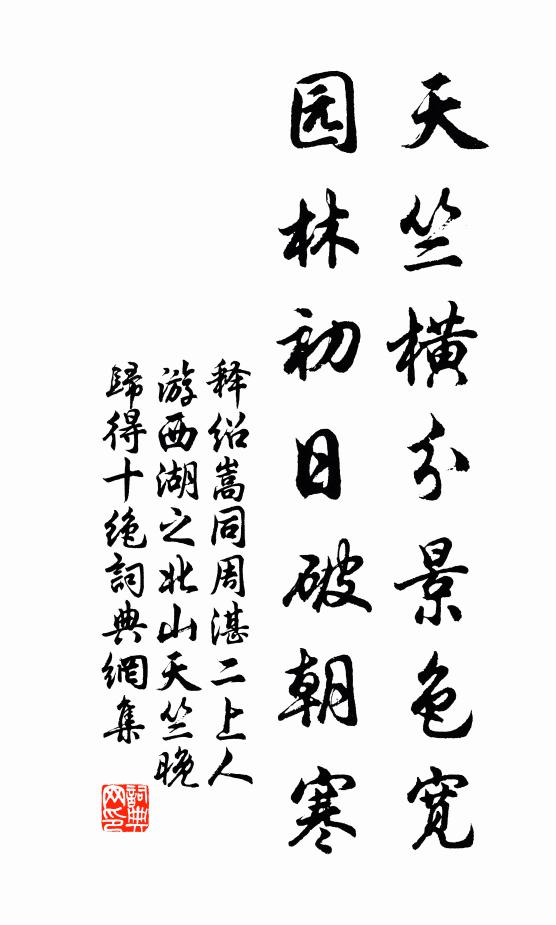 天竺横分景色宽
园林初日破朝寒
释绍嵩同周湛二上人
游西湖之北山天竺晚
歸得十绝詞典網集
詞典网印